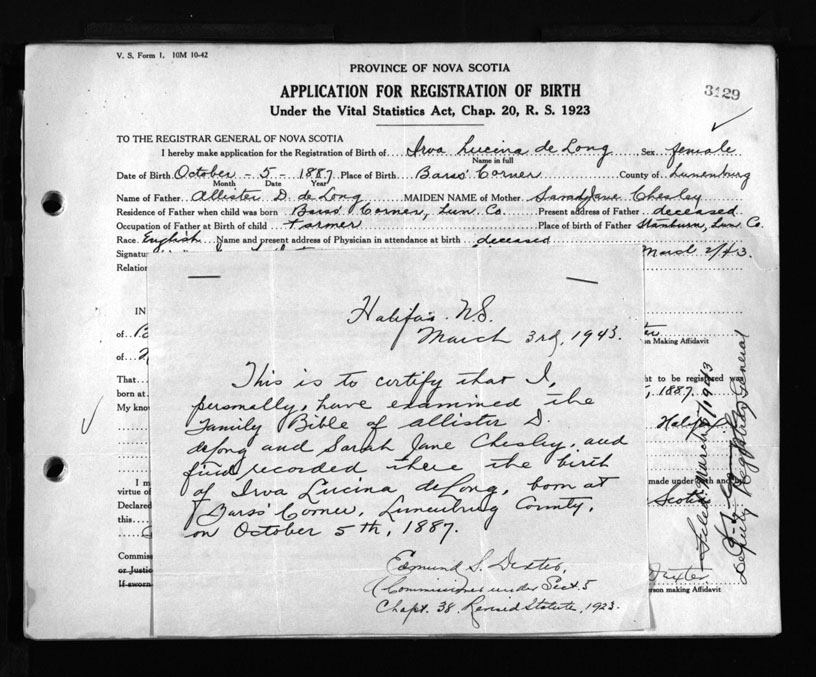 V. S. Form 1. 10M 10-42
PROVINCE OF NOVA SCOTIA
APPLICATION FOR REGISTRATION OF BIRTH
3129
Under the Vital Statistics Act, Chap. 20, R. S. 1923
TO THE REGISTRAR GENERAL OF NOVA SCOTIA
I hereby make application for the Registration of Birth of Irva Lucina de Long Sex female
Name in full
Date of Birth October - 5 - 1887 Place of Birth Barss' Corner County of Lunenburg
Month Date Year
Name of Father Allister D. de Long MAIDEN NAME of Mother Sarah Jane Chesley
Residence of Father when child was born Barss' Corner, Lun. Co. Present address of Father deceased
Occupation of Father at Birth of child Farmer Place of birth of Father Stanburn, Lun. Co.
Race English Name and present address of Physician in attendance at birth deceased
Signatu March 2/43.
Relation
Halifax N.S.
March 3rd, 1943.
This is to certify that I,
personally, have examined the
Family Bible of Allister D.
deLong and Sarah Jane Chesley, and
find recorded there the birth
of Irva Lucina deLong, born at
Barss' Corner, Lunenburg County,
on October 5th, 1887.
Edmund S. Dexter,
Commissioner under Sect. 5
Chapt. 38 Revised Statute, 1923.
IN
of B
of
That
born at
My know
I m
virtue of
Declared
this
Commiss
or Justic
If sworn
on Making Affidavit
ht to be registered was
, 1887.
Halifax
made under oath and by
Scotia
Dexter
rson making Affidavit
Filed March 5/1943
Deputy Registrar General